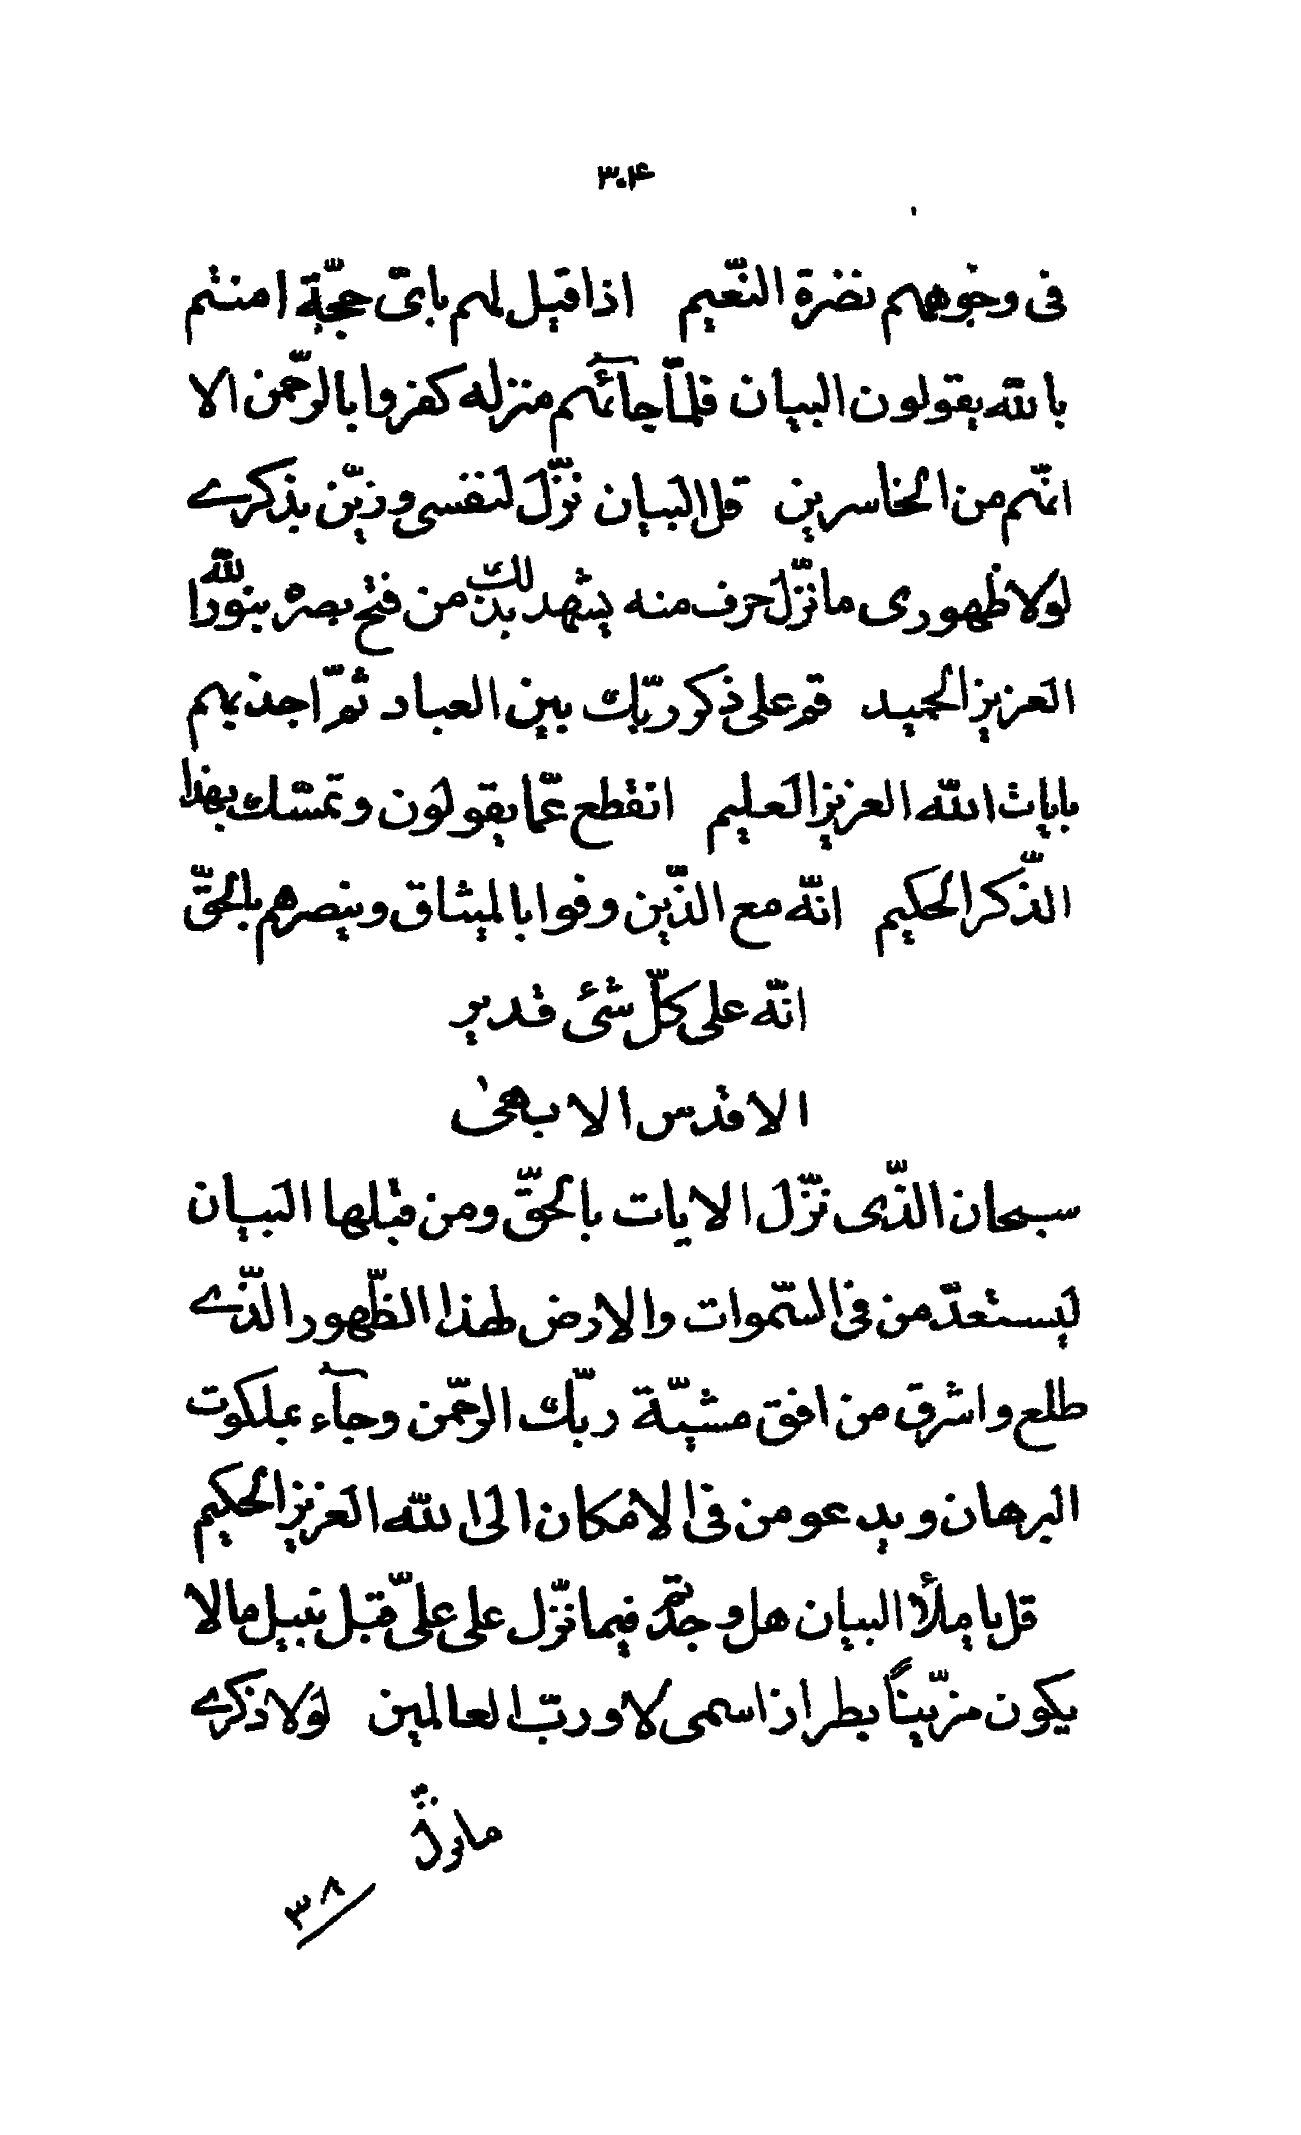 ۳۰۴
فی وجوههم نضرة النّعیم اذا قیل لهم بایّ حجّة امنتم
باللّه یقولون البیان فلمّا جآئهم منزله کفروا بالرّحمن الا
انّهم من الخاسرین قل البیان نزّل لنفسی و زیّن بذکرے
لولا ظهوری ما نزّل حرف منه یشهد بذلک من فتح بصره بنور اللّه
العزیز الحمید قم علی ذکر ربّک بین العباد ثمّ اجذبهم
بایات اللّه العزیز العلیم انقطع عمّا یقولون و تمسّک بهذا
الذّکر الحکیم انّه مع الّذین وفوا بالمیثاق و ینصرهم بالحقّ
انّه علی کلّ شیٔ قدیر
الاقدس الابهیٰ
سبحان الّذی نزّل الایات بالحقّ و من قبلها البیان
لیستعدّ من فی السّموات والارض لهذا الظّهور الّذے
طلع و اشرق من افق مشیّة ربّک الرّحمن و جآء بملکوت
البرهان و یدعو من فی الامکان الی اللّه العزیز الحکیم
قل یا ملأ البیان هل وجدتم فیما نزّل علی علیّ قبل نبیل ما لا
یکون مزیّناً بطراز اسمی لا و ربّ العالمین لولا ذکرے
ما نزّل
۳۸